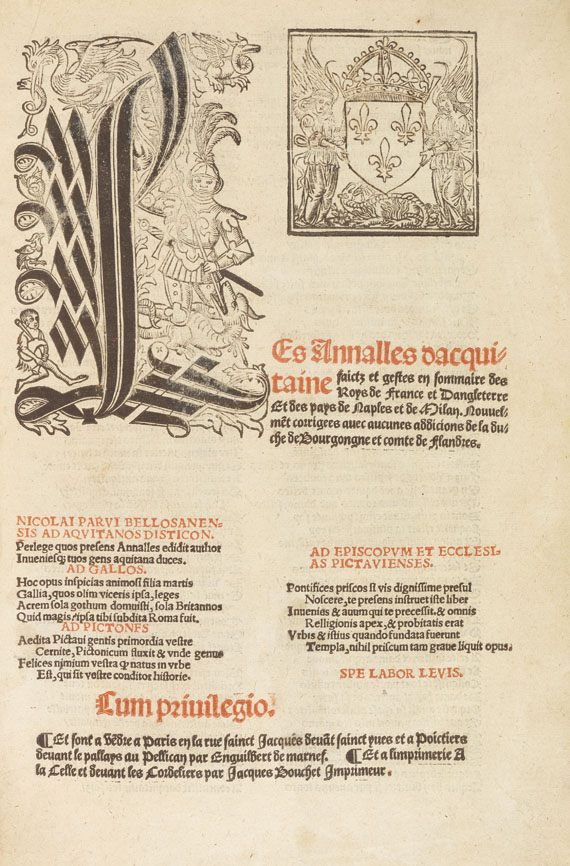 LEs Annalles dacqui-
taine faictz et gestes en sommaire des
Roys de France et Dangleterre
Et des pays de Naples et de Milan. Nouuel-
mēt corrigees auec aucunes addicions de la du
che de Bourgongne et comte de Flandres.
NICOLAI PARVI BELLOSANEN-
SIS AD AQVITANOS DISTICON.
Perlege quos presens Annalles edidit author
Inuenies q; tuos gens aquitana duces.
AD GALLOS.
Hoc opus inspicias animosi filia martis
Gallia, quos olim viceris ipsa, leges
Acrem sola gothum domuisti, sola Britannos
Quid magis ipsa tibi subdita Roma fuit.
AD PICTONES
Aedita Pictaui gentis primordia vestre
Cernite, Pictonicum fluxit & vnde genus
Felices nimium vestra q natus in vrbe
Est, qui sit vestre conditor historie.
AD EPISCOPVM ET ECCLESI-
AS PICTAVIENSES.
Pontifices priscos si vis dignissime presul
Noscere, te presens instruet iste liber
Inuenias & auum qui te precessit, & omnis
Relligionis apex, & probitatis erat
Vrbis & istius quando fundata fuerunt
Templa, nihil priscum tam graue liquit opus.
SPE LABOR LEVIS.
Cum priuilegio.
¶ Et sont a vēdre a Paris en la rue sainct Jacques deuāt sainct yues et a Poictiers
deuant le pallays au Pellican par Enguilbert de marnef. ¶ Et a limprimerie A
la Celle et deuant les Cordeliers par Jacques Bouchet Imprimeur.